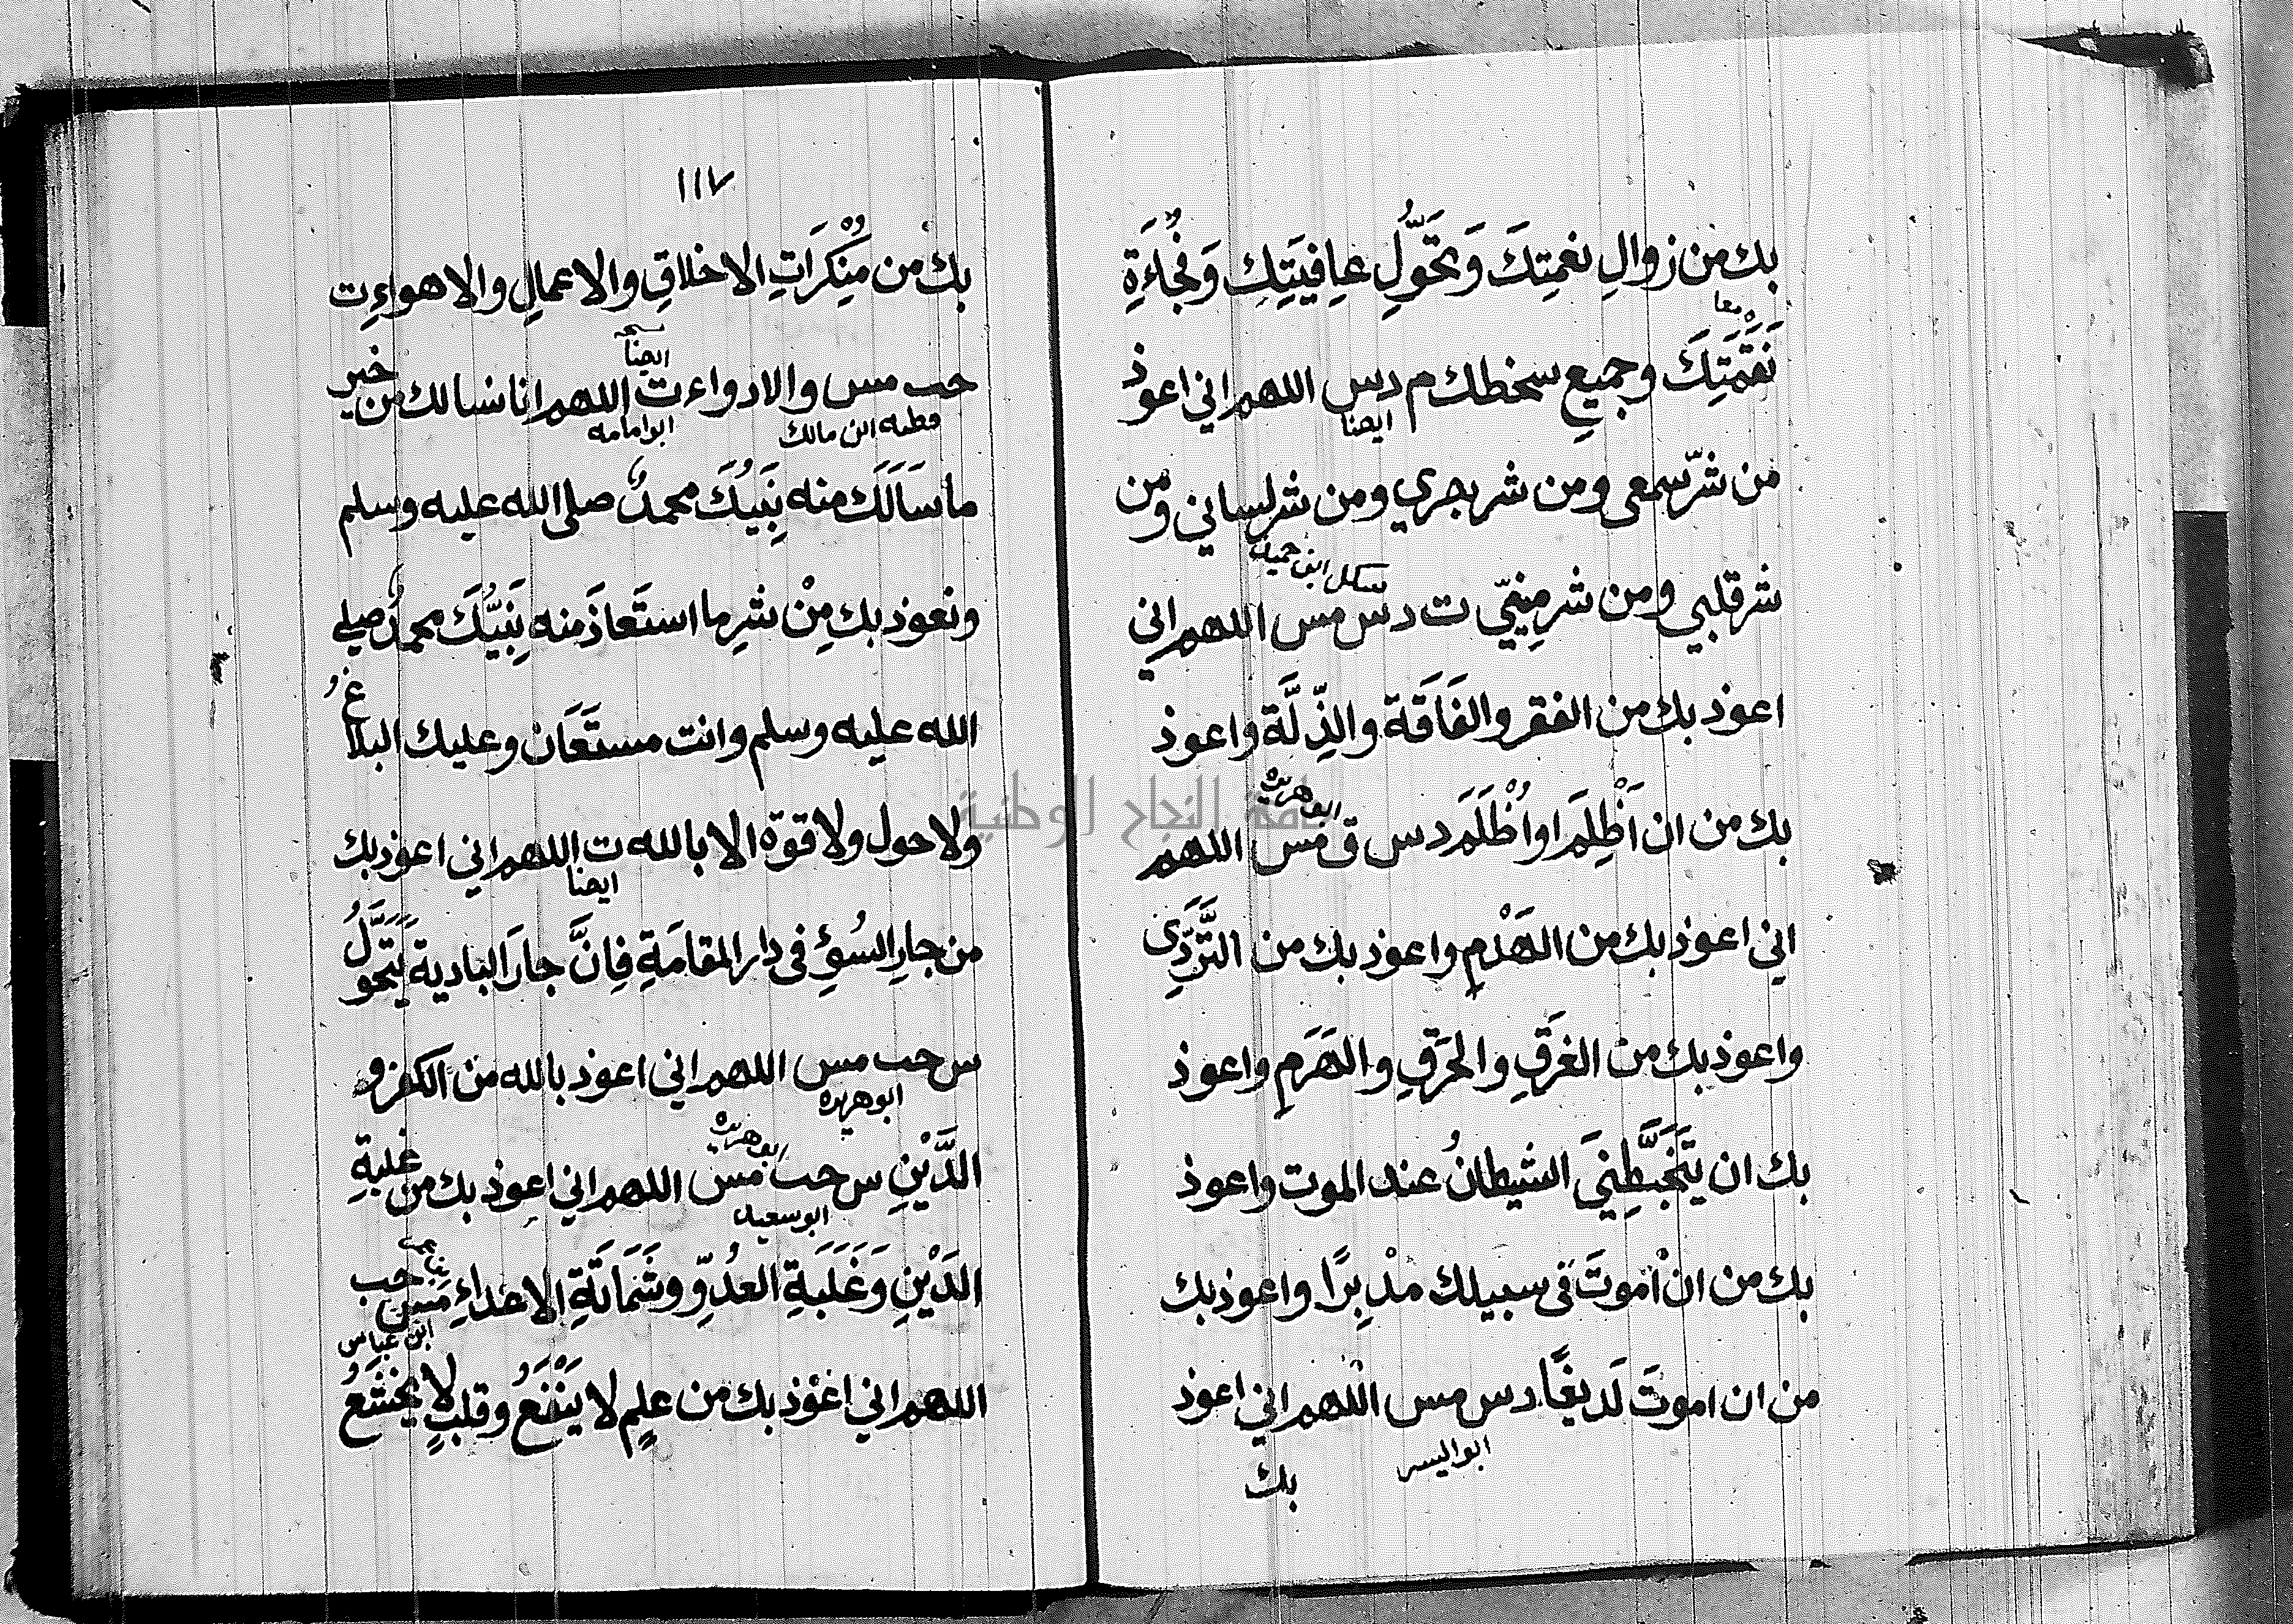 بك من زوالِ نعمتِكَ وَتَحَوُّلِ عافيَتِكِ وَفُجَاءَةِ
معا
نَقَمَتِكَ وجميعِ سخطك م دس اللهم اني اعوذ
ايضا
من شرّ سمعى ومن شر بصري ومن شر لساني ومن
شر قلبي ومن شر مِنيّي ت دس مس اللهم اني
اعوذ بك من الفقر والفَاقَة والذِّلَّة واعوذ
ابو هريرة
بك من ان اَظْلِمَ او اُظْلَمَ دس ق مس اللهم
اني اعوذ بك من الهَدْمِ واعوذ بك من التَّرَدِّى
واعوذ بك من الغَرَقِ والحَرَقِ والهَرَمِ واعوذ
بك ان يَتَخَبَّطِنيَ الشيطانُ عند الموت واعوذ
بك من ان اموتَ فى سبيلك مدْبِرًا واعوذ بك
من ان اموتَ لَديغًا دس مس اللهم اني اعوذ
ابو اليسر
بك
١١٧
بك من مُنْكَرَاتِ الاخلاقِ والاعمالِ والاهواءِ ت
ايضا
حب مس والادواء ت اللهم انا نسالك من خير
قطبه ابن مالك ابو امامه
ما سَاَلَكَ منه نَبِيُكَ محمدٌ صلى الله عليه وسلم
ونعوذ بك مِنْ شرِ ما استَعَاذَ منه نَبِيُّكَ محمدٌ صلى
الله عليه وسلم وانت مستَعَان وعليك البلاغُ
ولا حول ولا قوة الا بالله ت اللهم اني اعوذ بك
ايضا
من جارِ السُوءِ فى دار المقامَةِ فِانَّ جارَ البادية يَتَحَوَّلُ
س حب مس اللهم اني اعوذ بالله من الكفر و
ابو هريرة
ابو هريرة
الدَّيْنِ س حب مس اللهم اني اعوذ بك من غلبةِ
ابو سعيد
الدَيْنِ وَغَلَبَةِ العدُوِّ وشَمَاتَةِ الاعداءِ مس حب
ابن عباس
اللهم اني اعوذ بك من علمٍ لا يَنْفَعُ وقلبٍ لا يخشَعُ
جامعة النجاح الوطنية